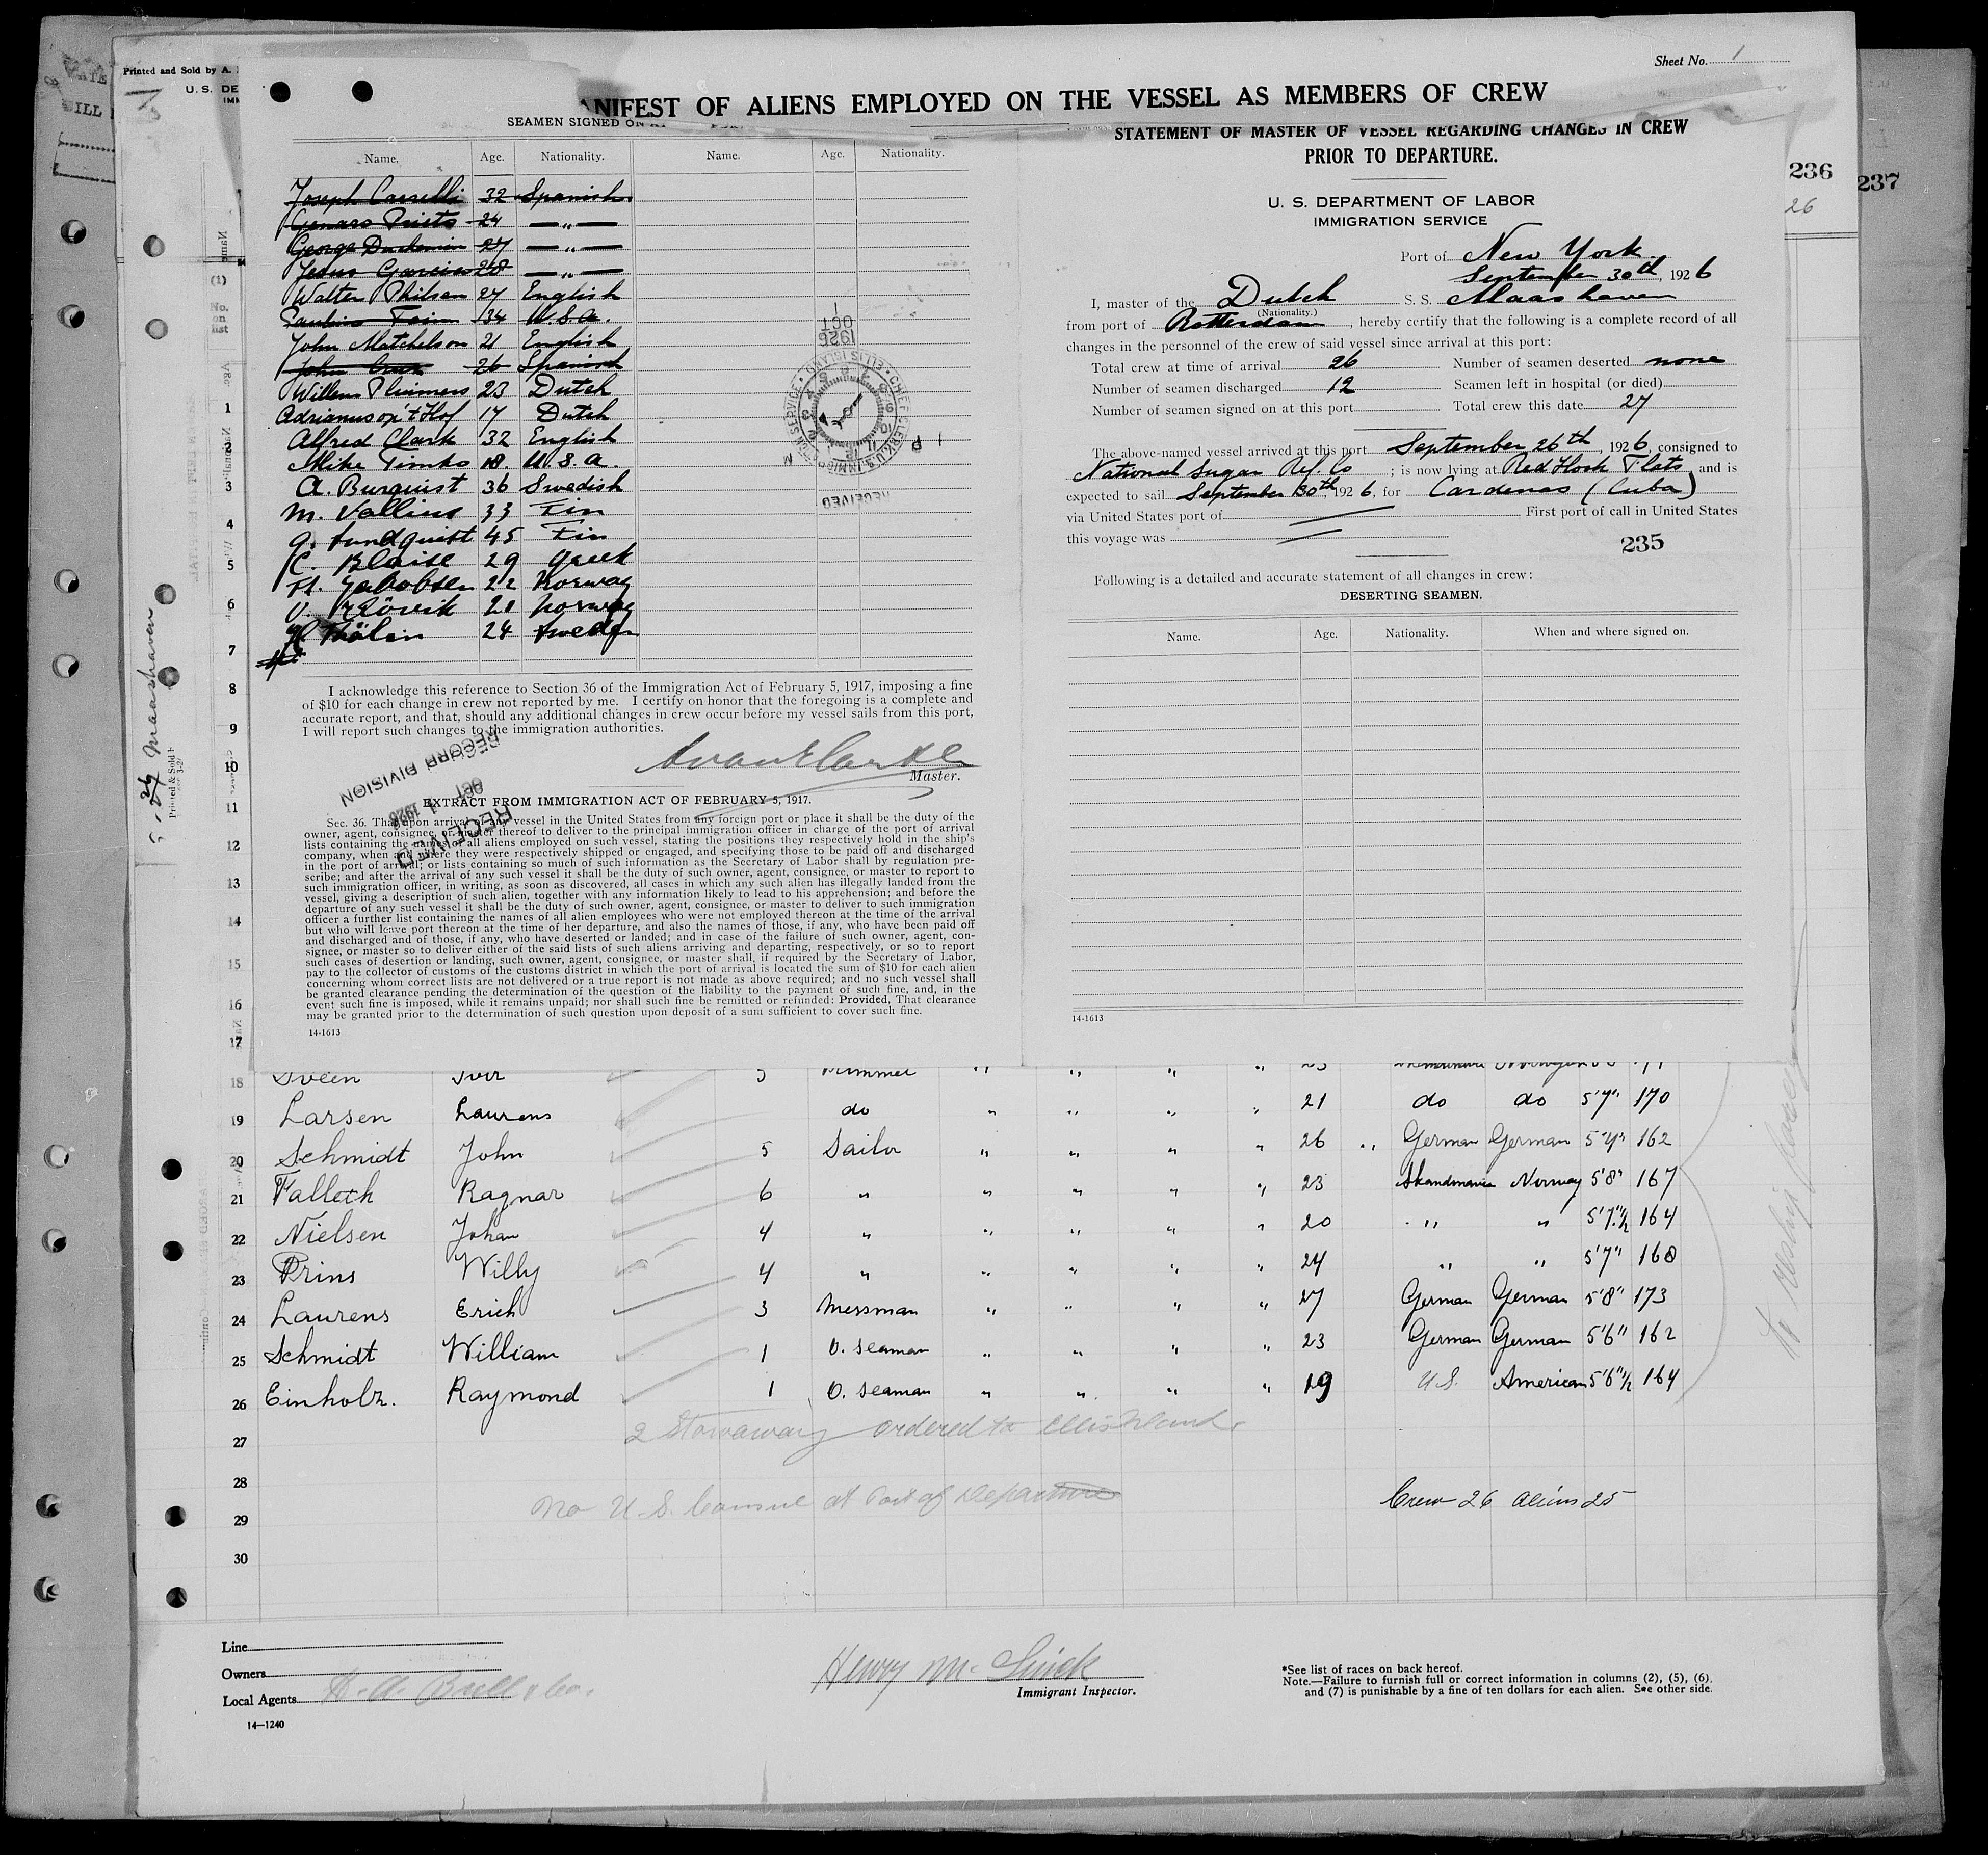 Sheet No. 1
Printed and Sold by A.
U. S. DE
IMM
NIFEST OF ALIENS EMPLOYED ON THE VESSEL AS MEMBERS OF CREW
SEAMEN SIGNED ON
Name. Age. Nationality. Name. Age. Nationality.
Joseph 32 Spanish
Genaro 24 — „ —
George 27 — „ —
Jesus Garcia 28 — „ —
Walter 27 English
34 U.S.A.
John Matchelson 21 English
John Cruz 26 Spanish
Willem 23 Dutch
Adrianus op't Hof 17 Dutch
Alfred Clark 32 English
Mike Timko 18. U.S.A.
A. Burquist 36 Swedish
M. Vallius 33 Fin
G. Lundquist 45 Fin
C. Blaise 29 Greek
H. Jakobsen 22 Norway
U. 21 Norway
H. Thölin 24 Sweden
I acknowledge this reference to Section 36 of the Immigration Act of February 5, 1917, imposing a fine
of $10 for each change in crew not reported by me. I certify on honor that the foregoing is a complete and
accurate report, and that, should any additional changes in crew occur before my vessel sails from this port,
I will report such changes to the immigration authorities.
Master.
RECEIVED
OCT 1 1926
RECORD DIVISION
EXTRACT FROM IMMIGRATION ACT OF FEBRUARY 5, 1917.
Sec. 36. That upon arrival of any vessel in the United States from any foreign port or place it shall be the duty of the
owner, agent, consignee, or master thereof to deliver to the principal immigration officer in charge of the port of arrival
lists containing the names of all aliens employed on such vessel, stating the positions they respectively hold in the ship's
company, when and where they were respectively shipped or engaged, and specifying those to be paid off and discharged
in the port of arrival; or lists containing so much of such information as the Secretary of Labor shall by regulation pre-
scribe; and after the arrival of any such vessel it shall be the duty of such owner, agent, consignee, or master to report to
such immigration officer, in writing, as soon as discovered, all cases in which any such alien has illegally landed from the
vessel, giving a description of such alien, together with any information likely to lead to his apprehension; and before the
departure of any such vessel it shall be the duty of such owner, agent, consignee, or master to deliver to such immigration
officer a further list containing the names of all alien employees who were not employed thereon at the time of the arrival
but who will leave port thereon at the time of her departure, and also the names of those, if any, who have been paid off
and discharged and of those, if any, who have deserted or landed; and in case of the failure of such owner, agent, con-
signee, or master so to deliver either of the said lists of such aliens arriving and departing, respectively, or so to report
such cases of desertion or landing, such owner, agent, consignee, or master shall, if required by the Secretary of Labor,
pay to the collector of customs of the customs district in which the port of arrival is located the sum of $10 for each alien
concerning whom correct lists are not delivered or a true report is not made as above required; and no such vessel shall
be granted clearance pending the determination of the question of the liability to the payment of such fine, and, in the
event such fine is imposed, while it remains unpaid; nor shall such fine be remitted or refunded: Provided, That clearance
may be granted prior to the determination of such question upon deposit of a sum sufficient to cover such fine.
14-1613
STATEMENT OF MASTER OF VESSEL REGARDING CHANGES IN CREW
PRIOR TO DEPARTURE.
U. S. DEPARTMENT OF LABOR
IMMIGRATION SERVICE
Port of New York
September 30th, 1926
I, master of the Dutch S. S. Maashaven
(Nationality.)
from port of Rotterdam, hereby certify that the following is a complete record of all
changes in the personnel of the crew of said vessel since arrival at this port:
Total crew at time of arrival 26 Number of seamen deserted none
Number of seamen discharged 12 Seamen left in hospital (or died)
Number of seamen signed on at this port Total crew this date 27
The above-named vessel arrived at this port September 26th, 1926, consigned to
National Sugar Ref. Co; is now lying at Red Hook Flats, and is
expected to sail September 30th, 1926, for Cardenas (Cuba)
via United States port of First port of call in United States
this voyage was
235
Following is a detailed and accurate statement of all changes in crew:
DESERTING SEAMEN.
Name. Age. Nationality. When and where signed on.
14-1613
236
237
26
Maashaven
1
2
3
4
5
6
7
8
9
10
11
12
13
14
15
16
17
18
19 Larsen Laurens do " " " " 21 do do 5'7" 170
20 Schmidt John 5 Sailor " " " " 26 German German 5'4" 162
21 Ragnar 6 " " " " " 23 Skandinavia Norway 5'8" 167
22 Nielsen Johan 4 " " " " " 20 " " 5'7"1/2 164
23 Prins Willy 4 " " " " " 24 " " 5'7" 168
24 Laurens Erich 3 Messman " " " " 27 German German 5'8" 173
25 Schmidt William 1 O. Seaman " " " " 23 German German 5'6" 162
26 Einholz. Raymond 1 O. Seaman " " " " 19 U.S. American 5'6"1/2 164
2 Stowaways ordered to Ellis Island
27
28
No U.S. Consul at Port of Departure
Crew 26 aliens 25
29
30
Line
Owners
Local Agents
Immigrant Inspector.
14—1240
*See list of races on back hereof.
Note.—Failure to furnish full or correct information in columns (2), (5), (6),
and (7) is punishable by a fine of ten dollars for each alien. See other side.